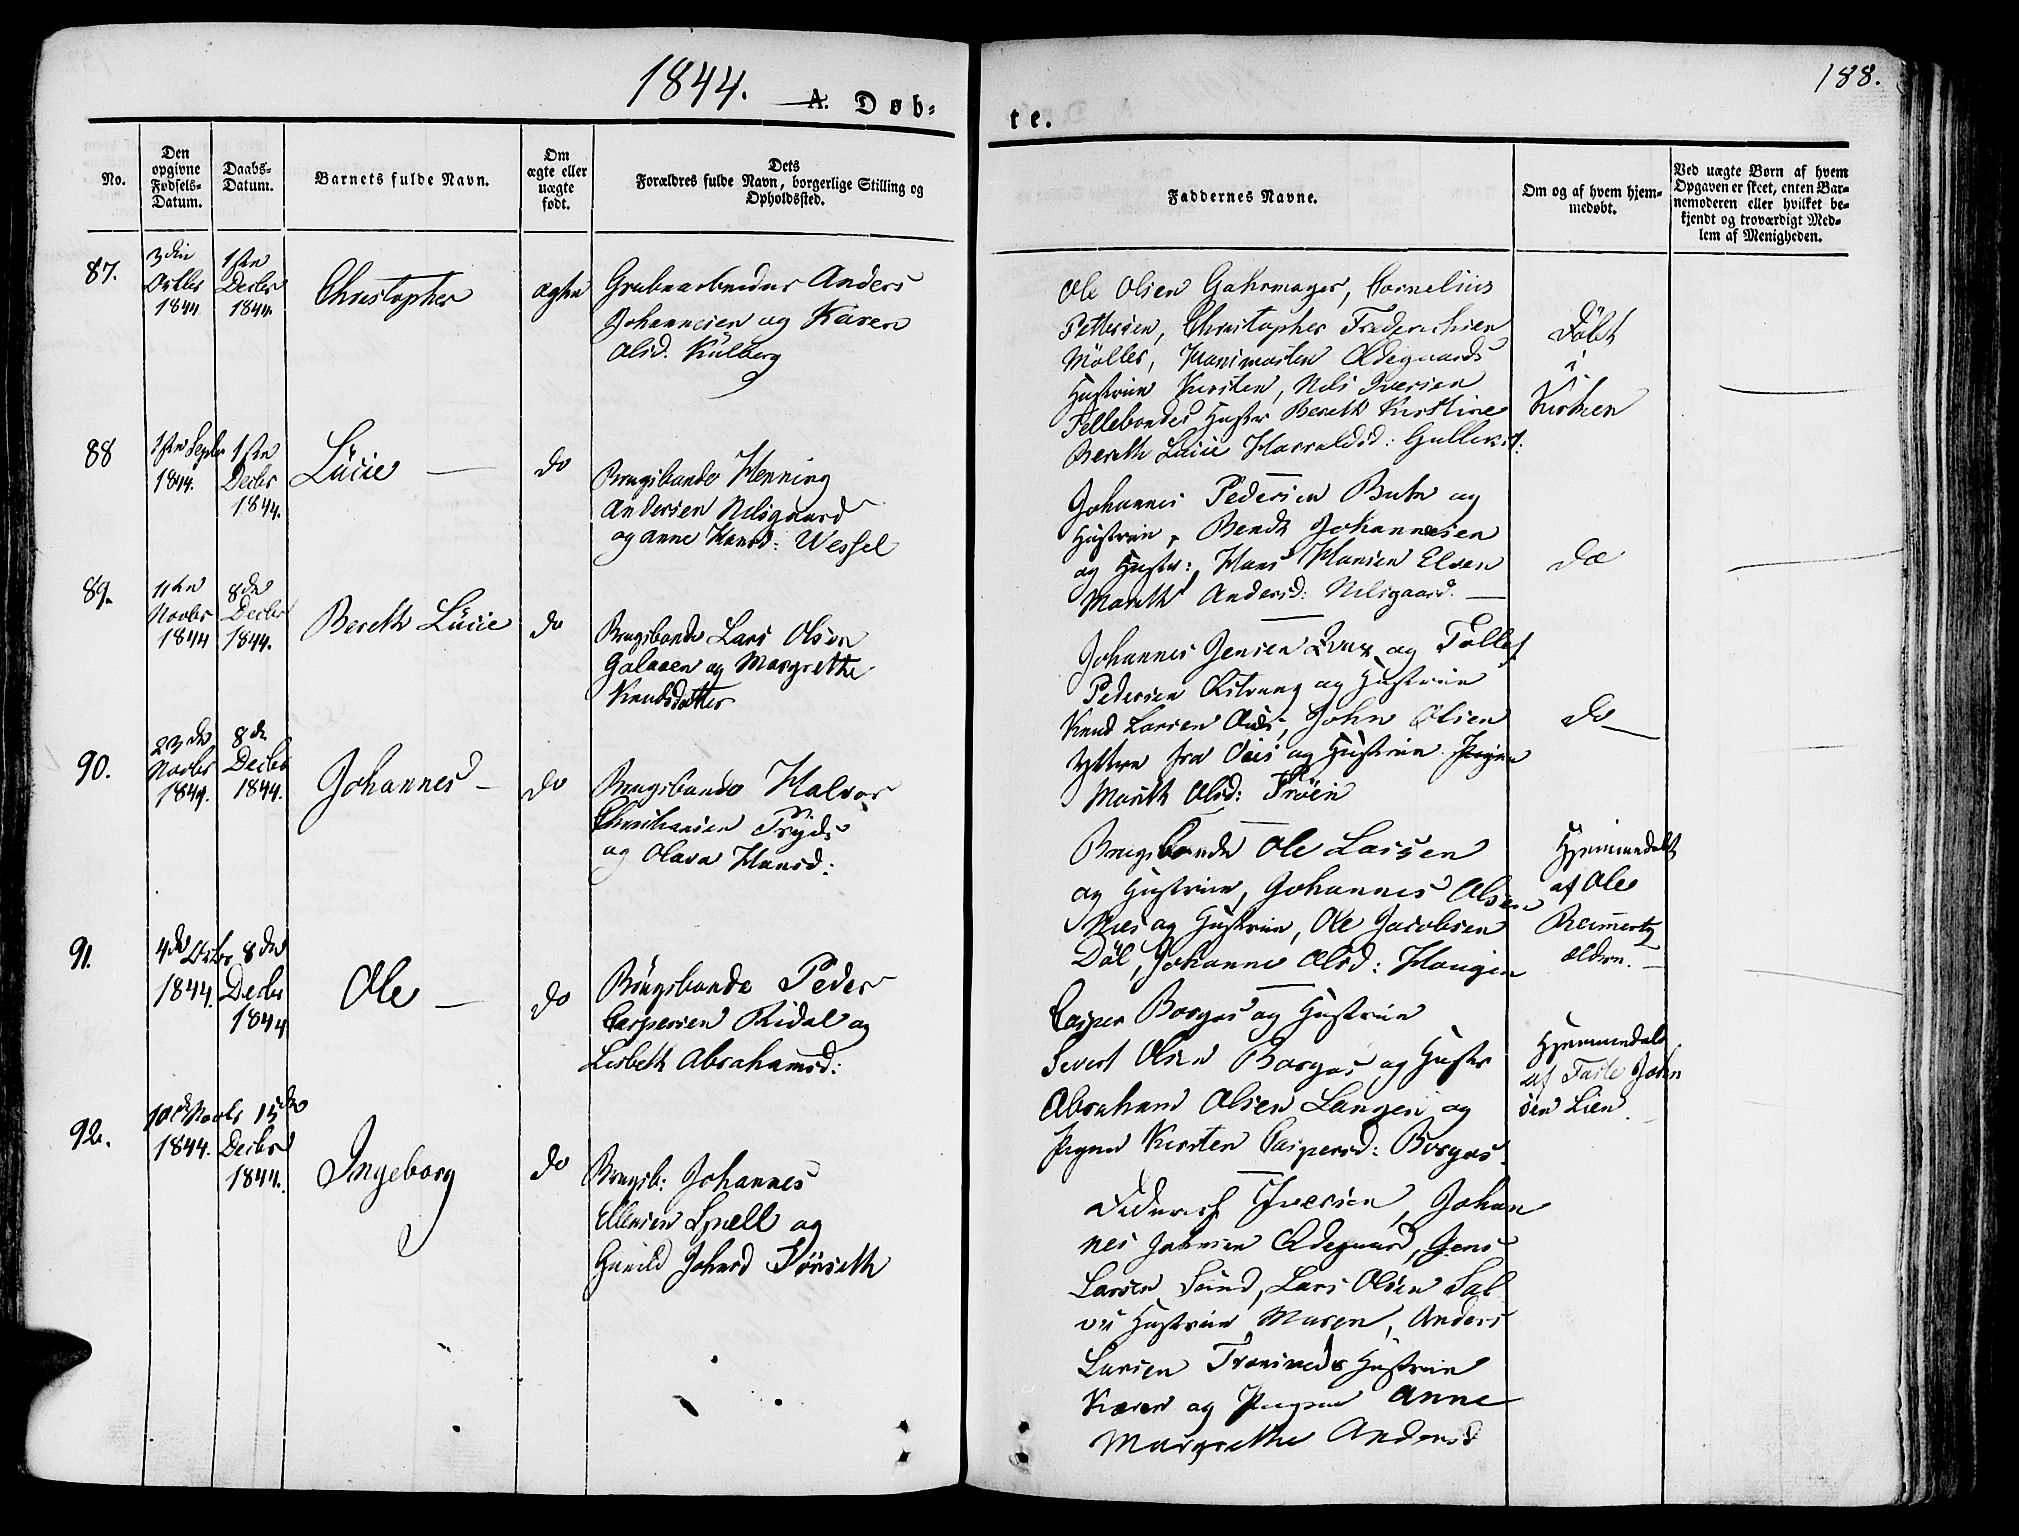 1844. A. Døb-
te. 188.
No.
Den
opgivne
Fødsels-
Datum.
Daabs-
Datum.
Barnets fulde Navn.
Om
ægte eller
uægte
født.
Dets
Forældres fulde Navn, borgerlige Stilling og
Opholdssted.
Faddernes Navne.
Om og af hvem hjem-
medøbt.
Ved uægte Børn af hvem
Opgaven er skeet, enten Bar-
nemoderen eller hvilket be-
kjendt og troværdigt Med-
lem af Menigheden.
87.
3die
Octbr
1844
1ste
Decbr
1844.
Christopher
ægte
Grubearbeider Anders
Johannesen og Karen
Olsd. Kulberg
Ole Olsen Gahrmager, Cornelius
Pettersen, Christopher Frederichsen
Møller, Hansmarten Ødegaards
Hustrue Kirsten, Nils Iversen
Fellebondes Hustr Bereth Kirstine
Bereth Lucie Harraldsd:
Døbt
i
Kirken
88
1ste Septbr
1844.
1ste
Decbr
1844.
Lucie
do
Brugsbonde Henning
Andersen Nilsgaard
og Anne Hansd: Wessel
Johannes Pedersen Butn og
Hustrue, Bendt Johannesen
og Hustr: Hans Hansen Elven
Marith Andersd: Nilsgaard.
do
89.
11te
Novbr
1844
8de
Decbr
1844.
Bereth Lucie
do
Brugsbonde Lars Olsen
Galaaen og Margrethe
Knudsdatter
Johannes Jensen og Tollef
Pedersen og Hustrue
Knud Larsen John Olsen
Yttre fra og Hustrue Pigen
Marith Olsd: Trøen
do
90.
23de
Novbr
1844.
8de
Decbr
1844.
Johannes
do
Brugsbonde Halvor
Christiansen
og Olava Hansd:
Brugsbonde Ole Lassen
og Hustrue, Johannes Olsen
Næs og Hustrue, Ole Jacobsen
Døl, Johanne Olsd: Haugen
Hjemmedøbt
af Ole
Reimertz
ældre.
91.
4de Octbr
1844.
8de
Decbr
1844
Ole
do
Brugsbonde Peder
Caspersen Ridal og
Lisbeth Abrahamsd:
Casper Borgos og Hustrue
Sivert Olsen Borgos og Hustr
Abraham Olsen Langen og
Pigen Kirsten Caspersd: Borgos.
Hjemmedøbt
af Tarle John
sen Lien.
92.
10de Novbr
1844.
15de
Decbr
1844.
Ingeborg
do
Brugsb: Johannes
Ellensen Spell og
Gunild Johnsd Førseth
Diderich Iversen, Johan
nes Johnsen Ødegaard, Jens
Larsen Sund, Lars Olsen Sal
vii Hustrue Maren, Anders
Larsen Tronsveds Hustrue
Karen og Pigen Anne
Margrethe Andersd